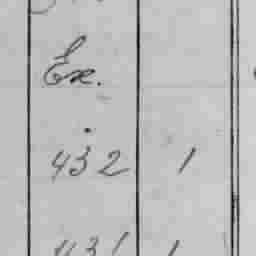 Ex.
432 1
431 1